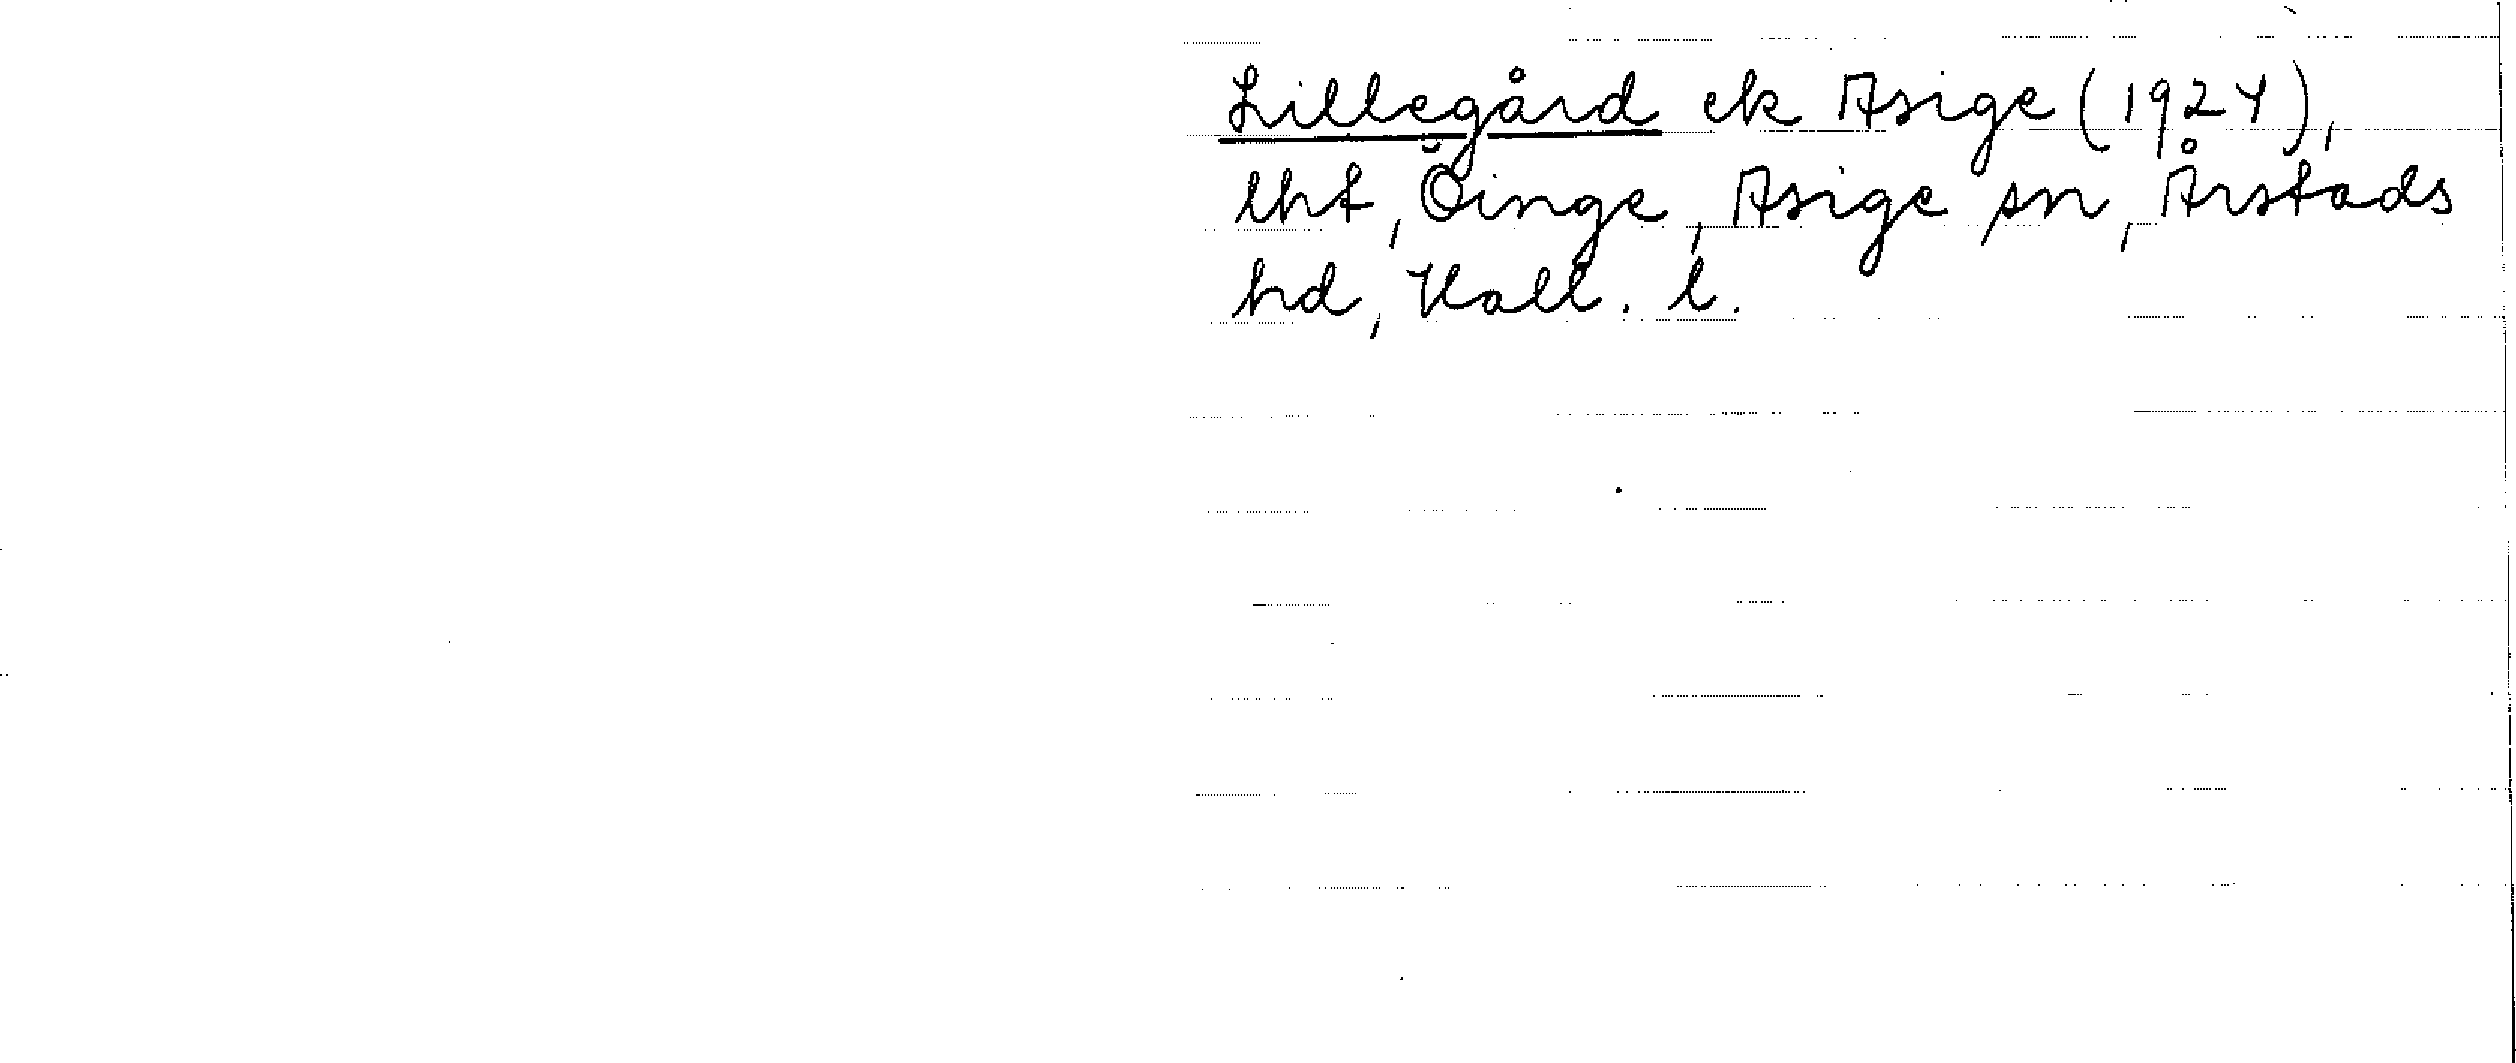 Lillegård ek Asige (1924),
lht, Öinge, Asige sn, Årstads
hd, Hall. l.